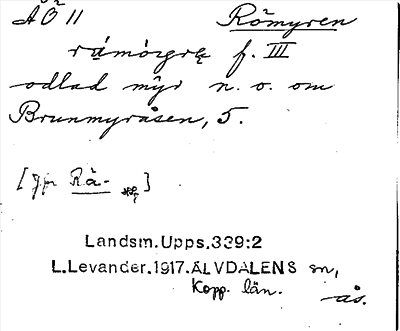 ÄÖ 11 Römyren
rą́mòrgrę f. III
odlad myr n. o. om
Brunmyråsen, 5.
[Jfr Rå- ]
Landsm.Upps.339:2
L.Levander.1917.ÄLVDALENS sn,
Kopp. län.
-ås.